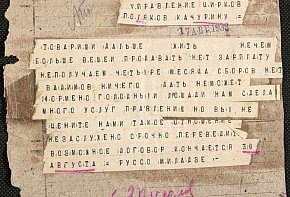 УПРАВЛЕНИЕ ЦИРКОВ
ПОЛЯКОВ КАЧУРИНУ=
17 АВГ 1938
ТОВАРИЩИ ДАЛЬШЕ ЖИТЬ НЕЧЕМ
БОЛЬШЕ ВЕЩЕЙ ПРОДАВАТЬ НЕТ ЗАРПЛАТУ
НЕПОЛУЧАЕМ ЧЕТЫРЕ МЕСЯЦА СБОРОВ НЕТ
ВАДИМОВ НИЧЕГО ДАТЬ НЕМОЖЕТ
КОРМЕНО ГОЛОДНЫЙ ЛОШАДИ НАМ СДЕЛА
МНОГО УСЛУГ ПРАВЛЕНИЮ НО ВЫ НЕ
ЦЕНИТЕ НАМИ ТАКОЕ ОТНОШЕНИЕ
НЕЗАСЛУЖЕНО СРОЧНО ПЕРЕВЕДИТЕ
ВОЗМОЖНОЕ ДОГОВОР КОНЧАЕТСЯ 30
АВГУСТА = РУССО МИЛЛАДЗЕ -